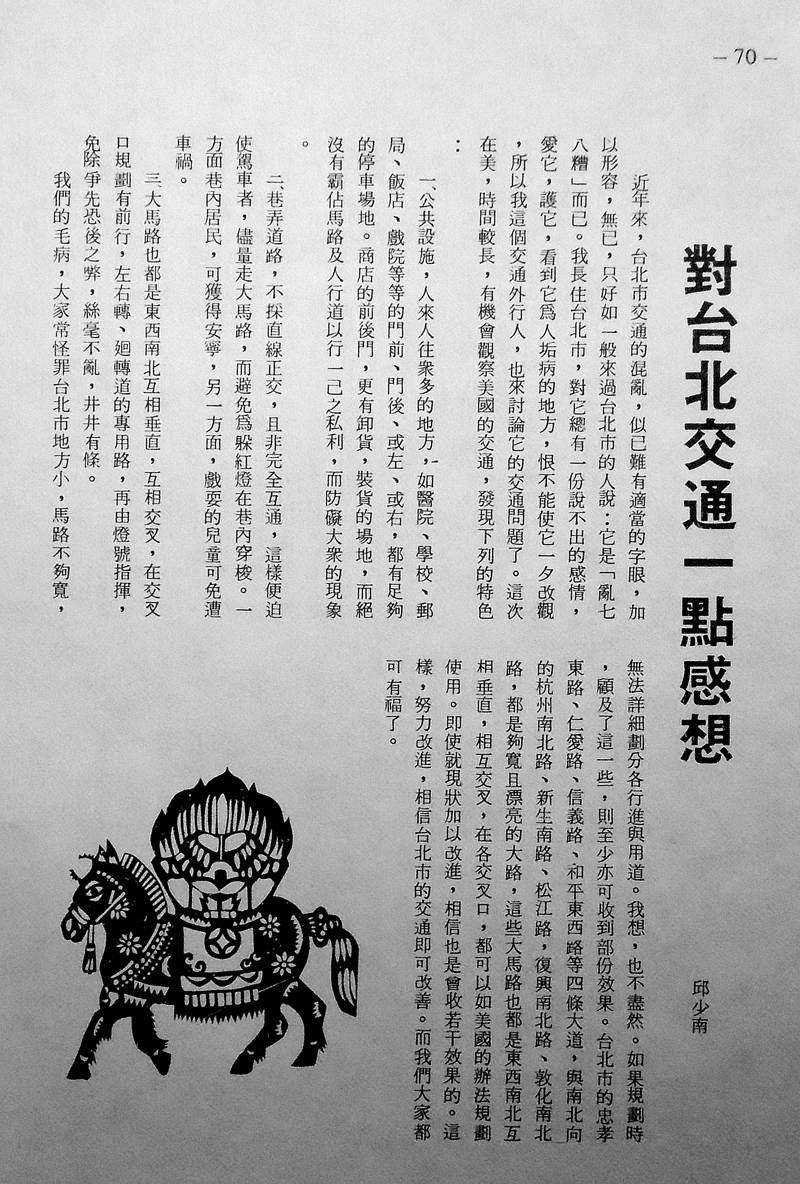 – 70 –
對台北交通一點感想
邱少南
近年來，台北市交通的混亂，似已難有適當的字眼，加
以形容，無已，只好如一般來過台北市的人說：它是「亂七
八糟」而已。我長住台北市，對它總有一份說不出的感情，
愛它，護它，看到它爲人垢病的地方，恨不能使它一夕改觀
，所以我這個交通外行人，也來討論它的交通問題了。這次
在美，時間較長，有機會觀察美國的交通，發現下列的特色
：
一、公共設施，人來人往衆多的地方，如醫院、學校、郵
局、飯店、戲院等等的門前、門後、或左、或右，都有足夠
的停車場地。商店的前後門，更有卸貨，裝貨的場地，而絕
沒有霸佔馬路及人行道以行一己之私利，而防礙大衆的現象
。
二、巷弄道路，不採直線正交，且非完全互通，這樣便迫
使駕車者，儘量走大馬路，而避免爲躲紅燈在巷內穿梭。一
方面巷內居民，可獲得安寧，另一方面，戲耍的兒童可免遭
車禍。
三、大馬路也都是東西南北互相垂直，互相交叉，在交叉
口規劃有前行，左右轉、廻轉道的專用路，再由燈號指揮，
免除爭先恐後之弊，絲毫不亂，井井有條。
我們的毛病，大家常怪罪台北市地方小，馬路不夠寬，
無法詳細劃分各行進與用道。我想，也不盡然。如果規劃時
，顧及了這一些，則至少亦可收到部份效果。台北市的忠孝
東路、仁愛路、信義路、和平東西路等四條大道，與南北向
的杭州南北路、新生南路、松江路，復興南北路、敦化南北
路，都是夠寬且漂亮的大路，這些大馬路也都是東西南北互
相垂直，相互交叉，在各交叉口，都可以如美國的辦法規劃
使用。即使就現狀加以改進，相信也是會收若干效果的。這
樣，努力改進，相信台北市的交通即可改善。而我們大家都
可有福了。